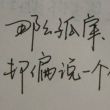 那么孤寡，
却偏说一个